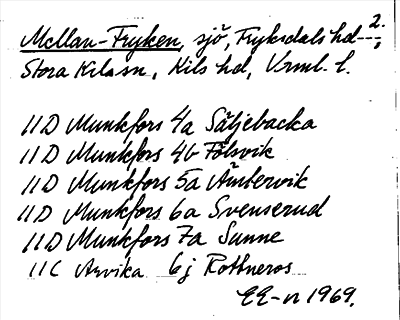 2.
Mellan-Fryken, sjö, Fryksdals hd---,
Stora Kil sn, Kils hd, Vrml. l.
11D Munkfors 4a Säljebacka
11D Munkfors 4b Fölsvik
11D Munkfors 5a Ämtervik
11D Munkfors 6a Svenserud
11D Munkfors 7a Sunne
11C Arvika 6j Rottneros
EE-n 1969.